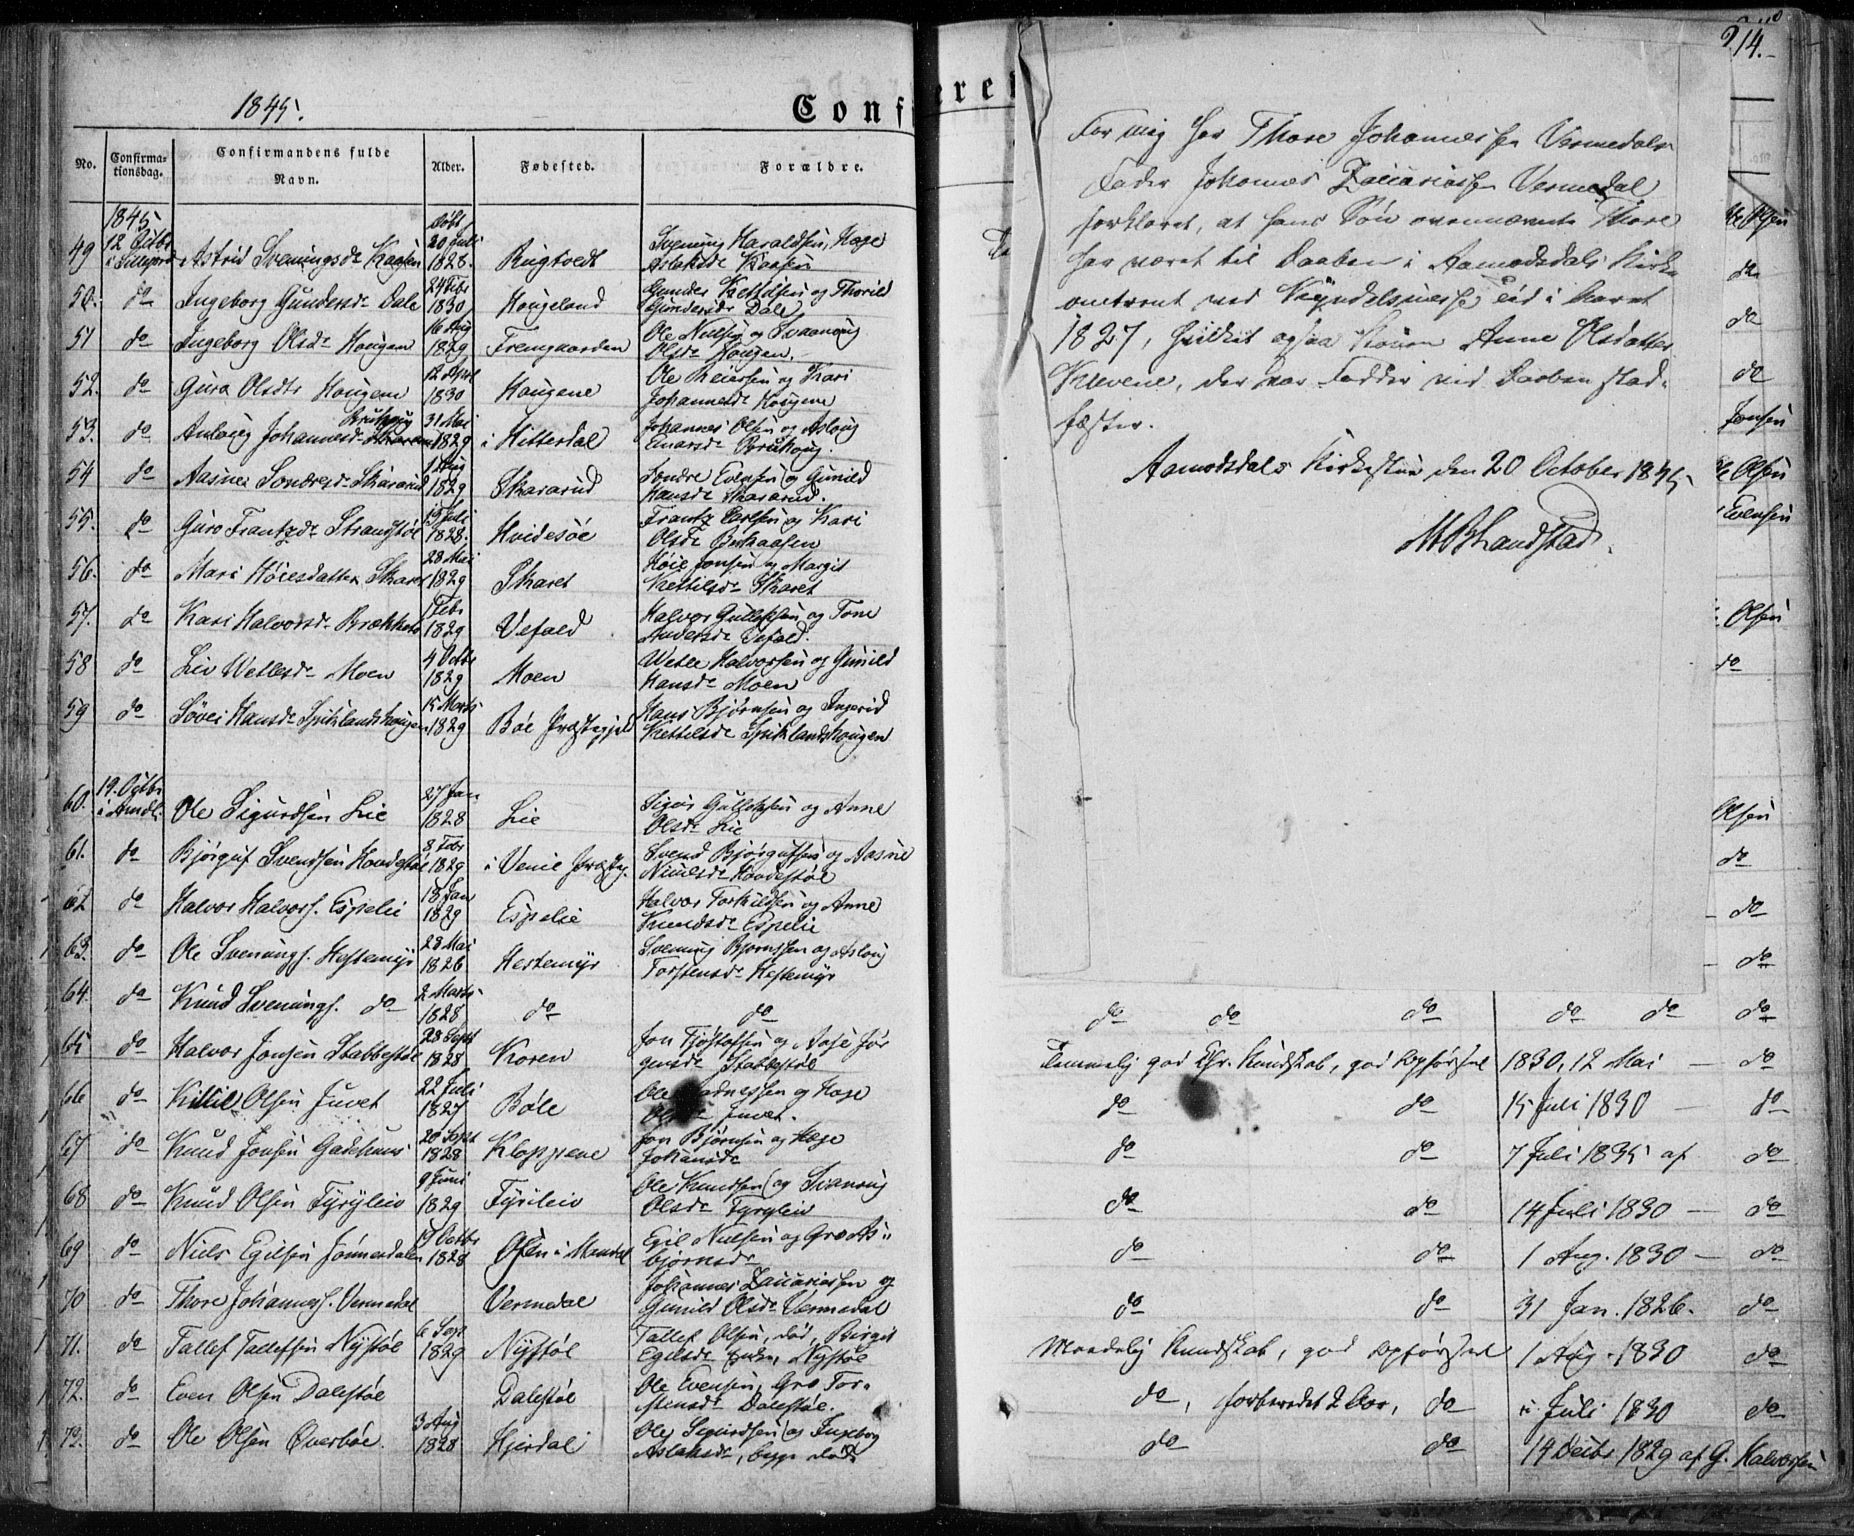 1845.
Conf
No.
Confirma-
tionsdag.
Confirmandens fulde
Navn.
Alder.
Fødested.
Forældre.
1845 Døbt
49 12 Octbr Astrid Sveningsdr Kaasen 20 Juli 1828. Rugtvedt Svenning Haraldsen, Hæge
Aslaksdr Kaasen
50. do Ingeborg Gundersdr Dale 24 Febr 1830 Hougeland Gunder Kettilsen og Thorild
Gundersdr Dale
51 do Ingeborg Olsdr Hougen 16 Aug 1829 Fremgaarden Ole Nielsen og Svanoug
Olsdr Hougen.
52. do Guro Olsdtr Hougen 12 April 1830 Hougene Ole Reiersen og Kari
Johannesdr Hougene
53. do Anloug Johannesdr 31 Mai 1829 i Hitterdal Johannes Olsen og Asloug
Einarsdr Bruhoug.
54 do Aasne Sondresdr Skararud 1 Aug 1829 Skararud Sondre Evensen og Gunild
Hansdr Skararud.
55. do Guro Frantzdr Strandstøl 19 Juli 1828. Hvidesøe Frantz Carlsen og Kari
Olsdr Berkaasen
56. do Mari Höiesdatter Skaret 28 Mai 1829 Skaret Höie Jonsen og Margit
Kettilsdr Skaret
57. do Kari Halvorsdr Brækhus 1 Febr 1829 Vefald Halvor Gulleksen og Tone
Andersdr Vefald.
58 do Liv Vetlesdr Moen 4 Octbr 1829 Moen Vetle Halvorsen og Gunild
Hansdr Moen
59 do Søvei Hansdr Spiklandshougen 15 Marts 1829 Bøe Præstegjeld Hans Bjørnsen og Ingerid
Kettilsdr Spiklandshougen
60. 19. Octbr Ole Sigurdsen Lie 27 Jan 1828 Lie Sigur Gulleksen og Anne
Olsdr Lie
61. do Bjørguf Svendsen Hovdestøl 8 Febr 1829 i Vinie Præsteg. Svend Bjørgufsen og Aasne
Nielsdr Hovdestøl
62 do Halvor Halvors. Espelie 18 Jan 1829 Espelie Halvor Torkildsen og Anne
Knudsdr Espelie
63. do Ole Svenings. Hestemyr 28 Mai 1826 Hestemyr Svening Bjørnsen og Asloug
Torstensdr Hestemyr
64. do Knud Svenings. do 2 Marts 1828 do do
65 do Halvor Jonsen Stabbestøl 28 Sept 1828 Koren Jon Tjøstolfsen og Aase Jør
gensdr Stabbestøl
66 do Kittil Olsen Juvet 22 Juli 1827 Bøle Ole og Hæge
Juvet.
67 do Knud Jonsen Gadehuus 20 Sept 1828 Kloppene Jon Bjørnsen og Hæge
Johansdr
68 do Knud Olsen Tyryleiv 9 Juni 1829 Tyrileiv Ole Knudsen og Svanoug
Olsdr Tyryleiv
69 do Niels Egilsen Jønnesdalen 19 Octbr 1828 Ofen i Mandal Egil Nielsen og Gro As-
bjørnsdr
70 do Thore Johannes. Vermedal Vermedal Johannes Zacariassen og
Gunild Olsdr Vermedal
71. do Tallef Tallefsen Nystøl 6 Sept 1829 Nystøl Tallef Olsen, død, Birgit
Egilsdr Enke, Nystøl
72. do Even Olsen Dalestøl Dalestøl Ole Evensen, Gro Tor-
stensdr Dalestøl.
73. do Ole Olsen Øverbøe. 3 Aug 1828 Hjerdal Ole Sigurdsen og Ingeborg
Aslaksdr, begge døde
ere
214.
For mig har Thore Johannessen Vermedals
Fader Johannes Zacariassen Vermedal
forklaret, at hans Søn ovennævnte Thore
har været til Daaben i Aamodsdals Kirke
omtrent ved Kyndelsmesse tid i Aaret
1827, hvilket ogsaa Konen Anne Olsdatter
Klevene, der var Fadder ved Daaben stad-
fæster.
Aamodsdals Kirkestue den 20 October 1845
MBLandstad.
Olsen
do
do
do
Jonsen
Olsen
Evensen
Olsen
do
Olsen
do
do
do
do do do do do do
Temmelig god Chr. Kundskab, god Opførsel 1830, 12 Mai — do
do do 15 Juli 1830 — do
do do 7 Juli 1835 af do
do do 14 Juli 1830 — do
do do 1 Aug. 1830 — do
do do 31 Jan. 1826. do
Maadelig Kundskab, god Opførsel 1 Aug. 1830 do
do, forberedet 2 Aar, do i Juli 1830 do
do do 14 Decbr 1829 af G. Halvorsen